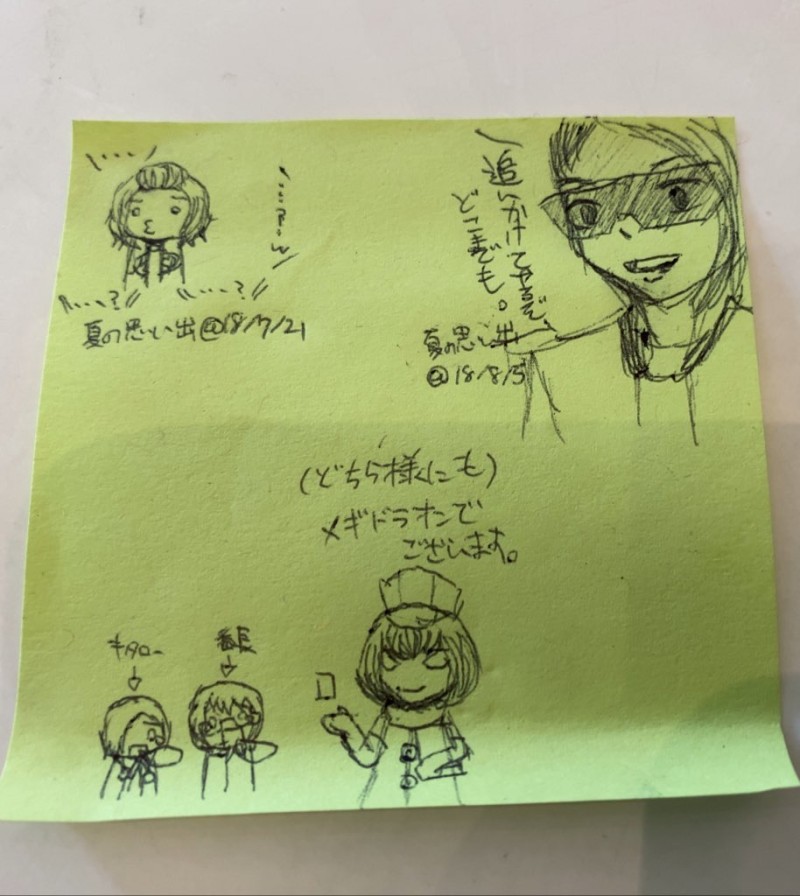 夏の思い出@18/7/21
追いかけてやるぞ、
どこまでも。
夏の思い出
@18/8/5
(どちら様にも)
メギドラオンで
ございます。
キタロー
番長